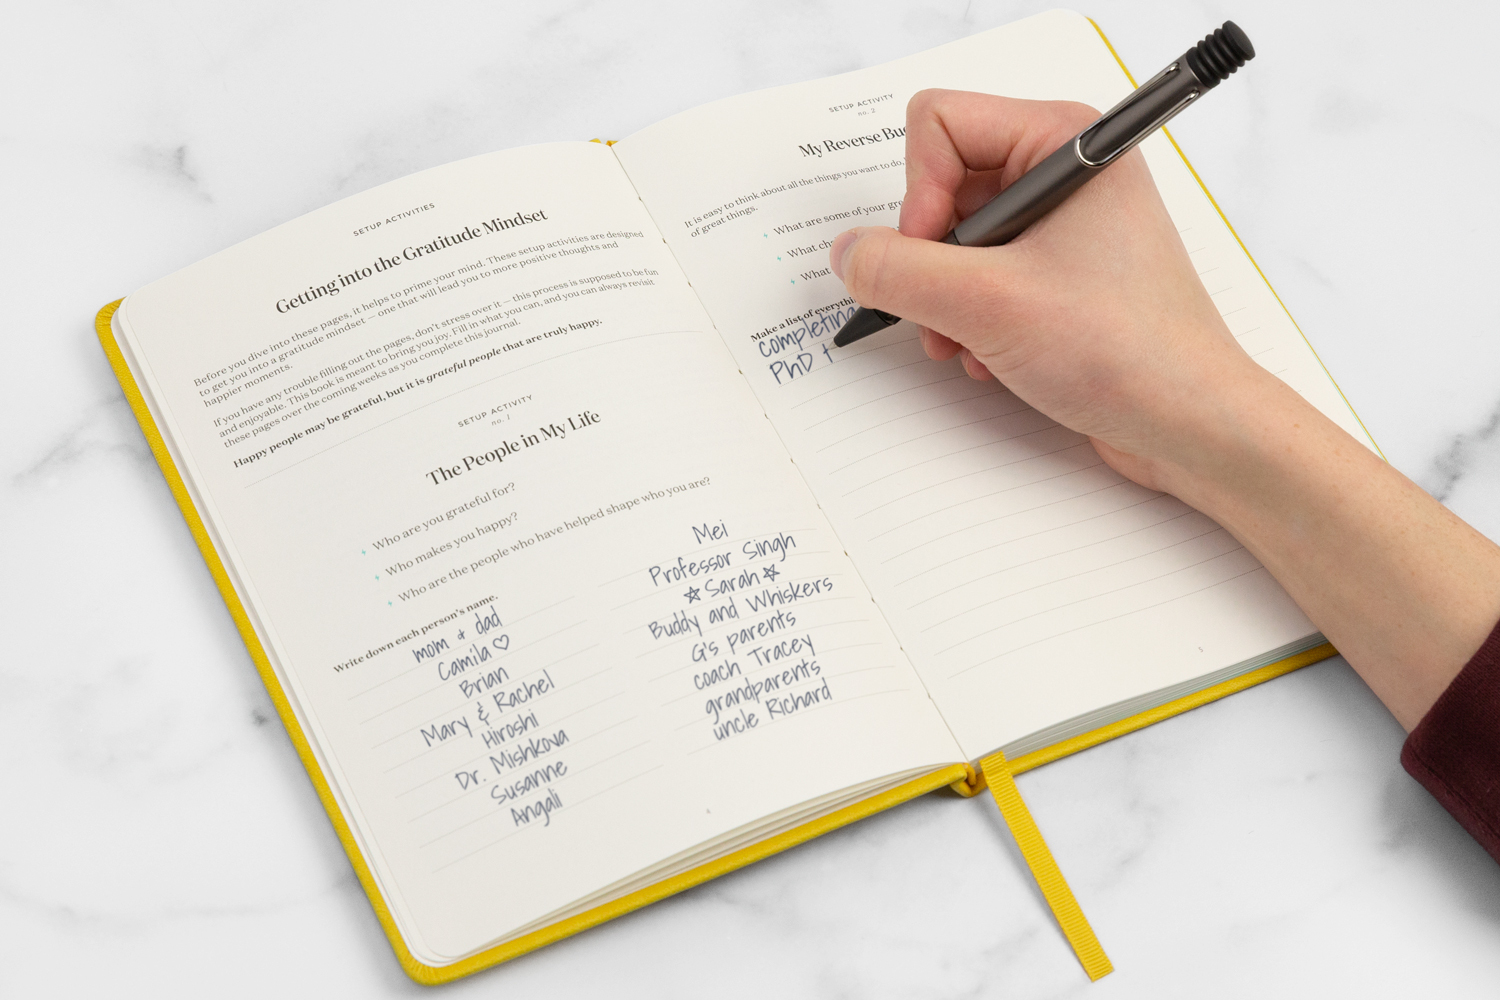 SETUP ACTIVITIES
Getting into the Gratitude Mindset
Before you dive into these pages, it helps to prime your mind. These setup activities are designed
to get you into a gratitude mindset — one that will lead you to more positive thoughts and
happier moments.
If you have any trouble filling out the pages, don't stress over it — this process is supposed to be fun
and enjoyable. This book is meant to bring you joy. Fill in what you can, and you can always revisit
these pages over the coming weeks as you complete this journal.
Happy people may be grateful, but it is grateful people that are truly happy.
SETUP ACTIVITY
no. 1
The People in My Life
Who are you grateful for?
Who makes you happy?
Who are the people who have helped shape who you are?
Write down each person's name.
mom & dad
Camila ♡
Brian
Mary & Rachel
Hiroshi
Dr. Mishkova
Susanne
Angali
Mei
Professor Singh
☆ Sarah ☆
Buddy and Whiskers
G's parents
coach Tracey
grandparents
uncle Richard
SETUP ACTIVITY
no. 2
My Reverse
It is easy to think about all the things you want to do,
of great things.
What are some of your
What
What
Make a list of
completing
PhD